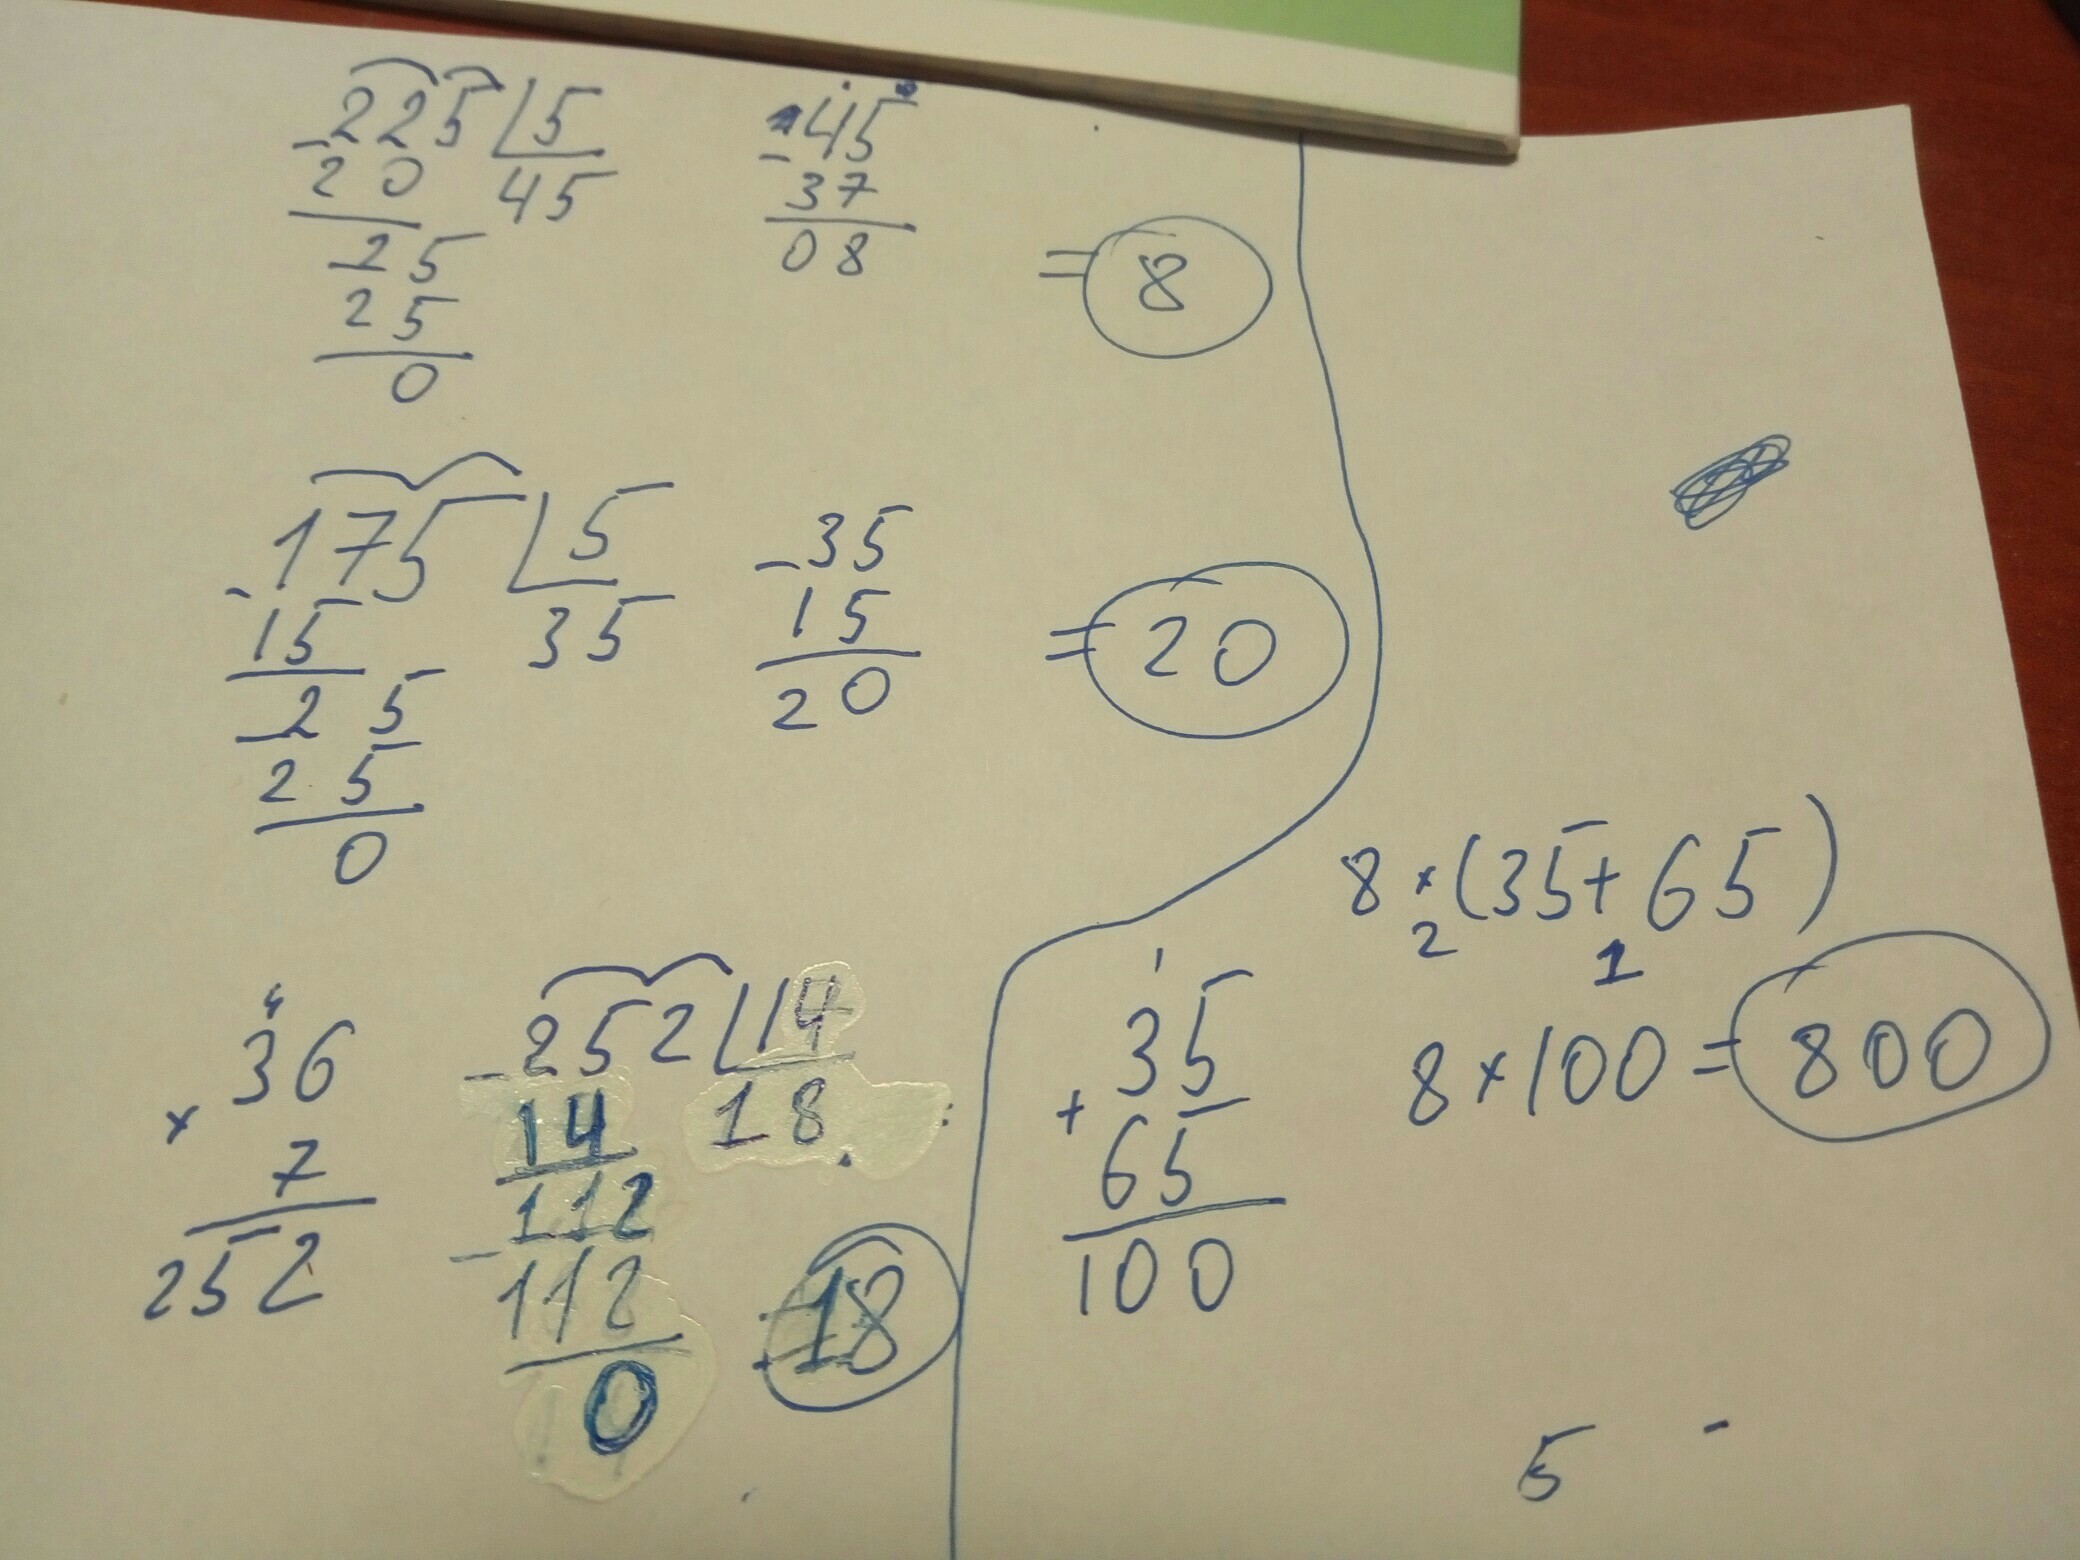 225 5
- 20 45
25
25
0
45
- 37
08
= 8
175 5
- 15 35
- 25
25
0
- 35
15
20
= 20
4
36
× 7
252
- 252 14
14 18
112
- 112
0
= 18
1
35
+ 65
100
8 × (35 + 65)
2 1
8 × 100 = 800
5 -